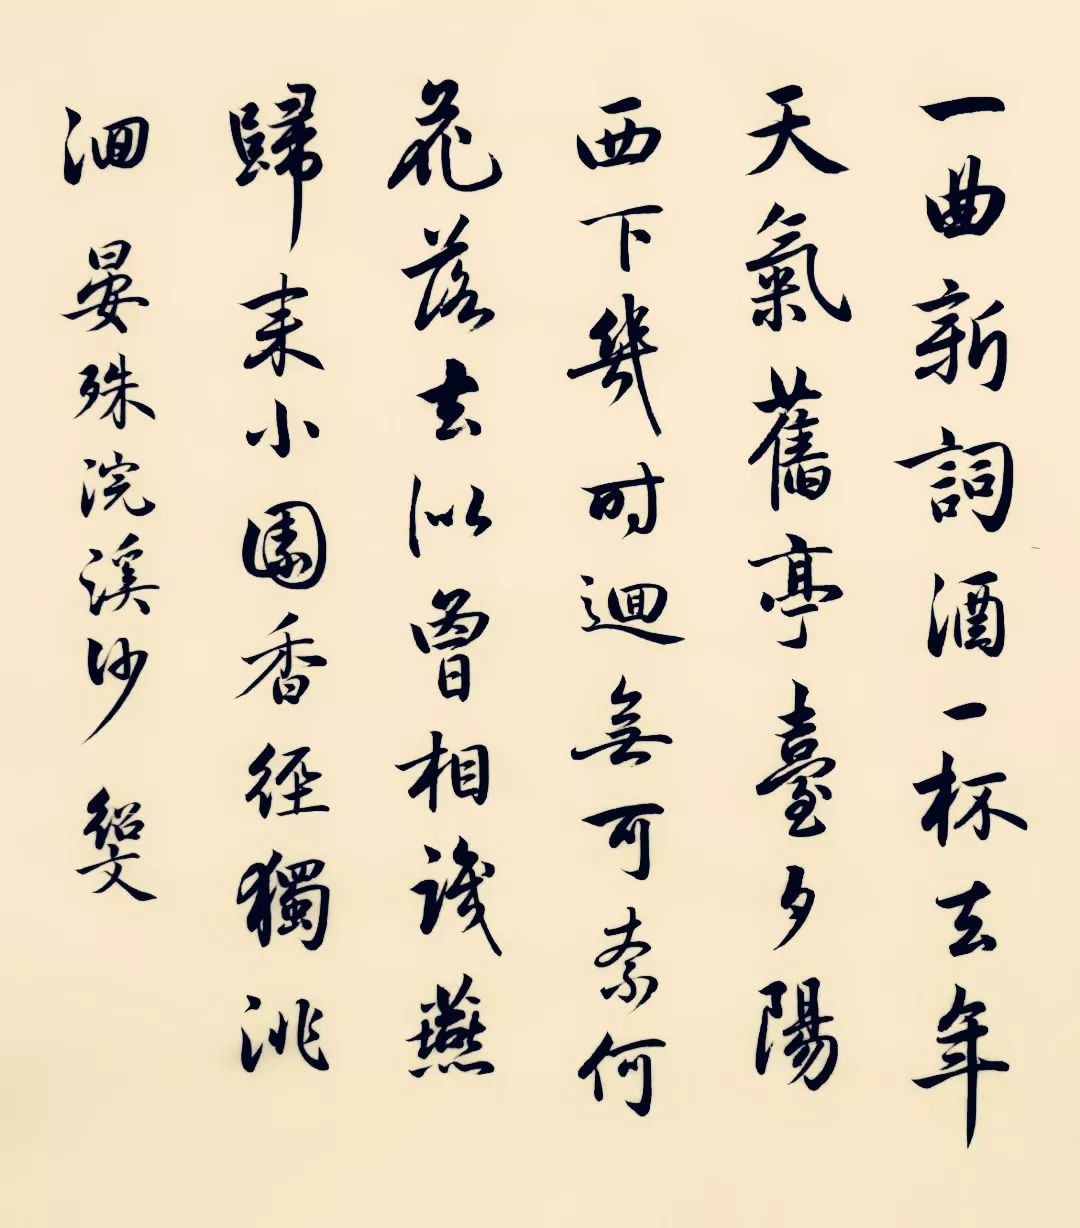 一曲新詞酒一杯去年
天氣舊亭臺夕陽
西下幾时迴無可奈何
花落去似曾相識燕
歸来小園香徑獨徘
徊 晏殊浣溪沙 紹文